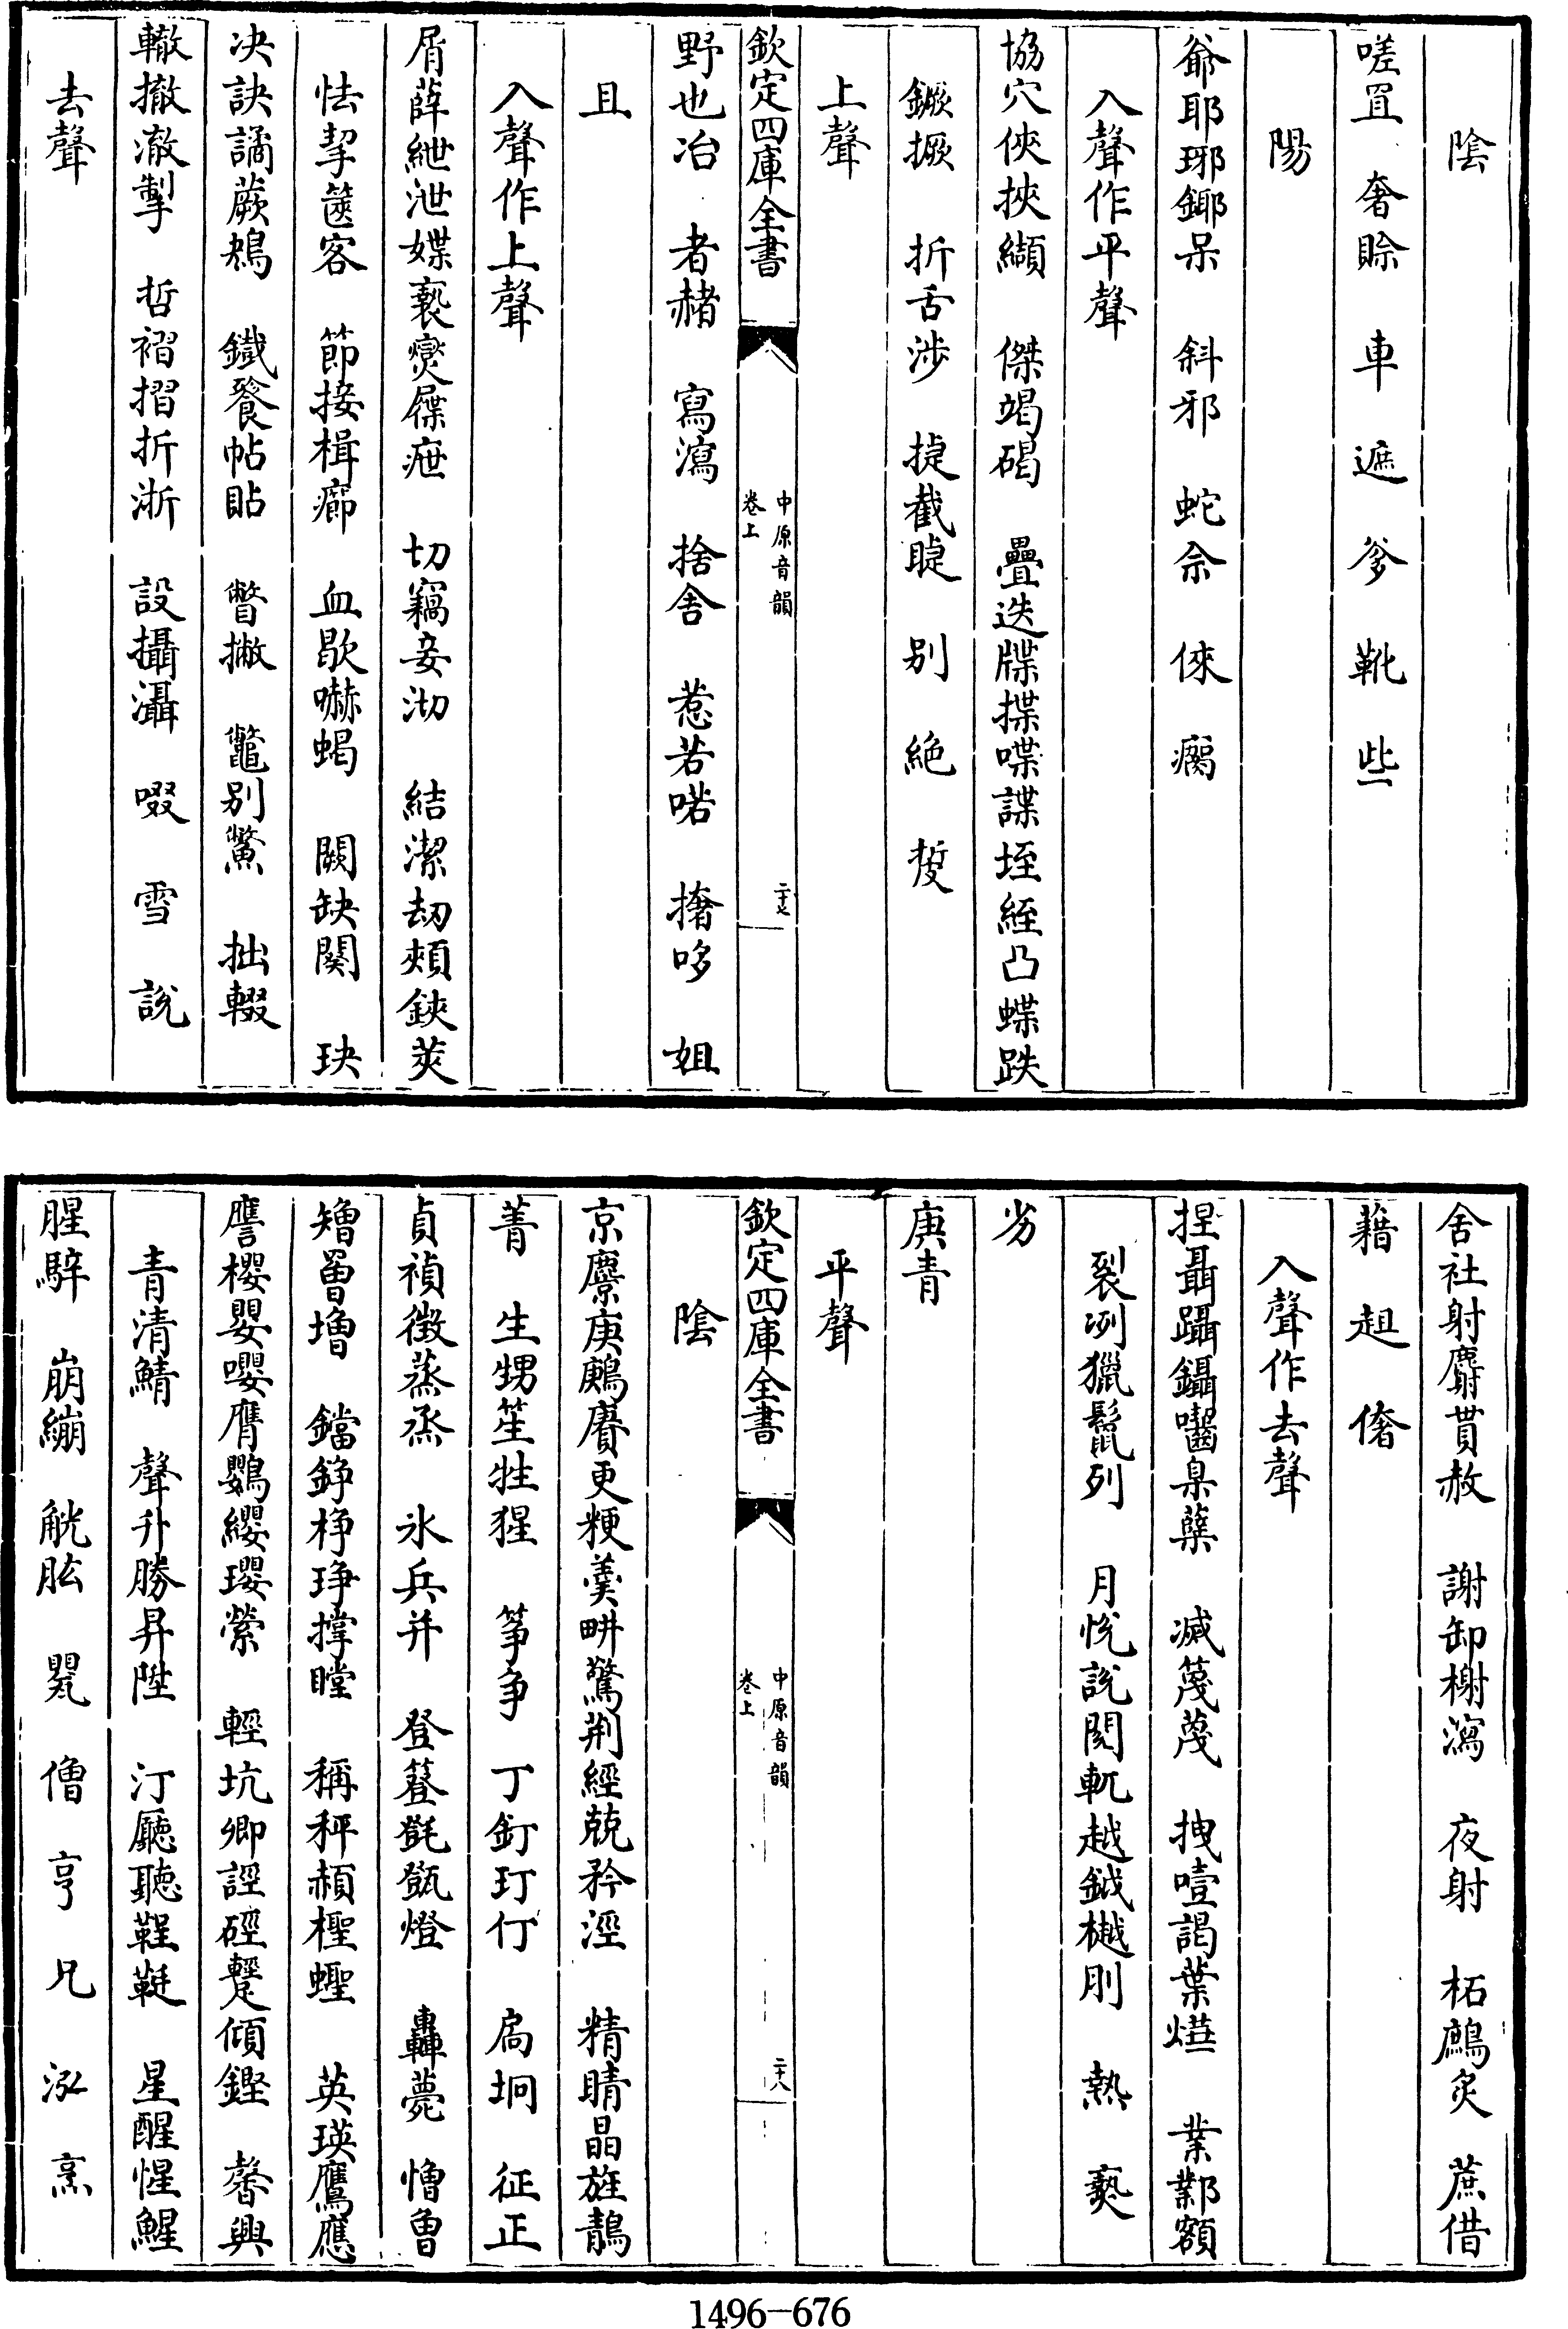 陰
嗟罝 奢賒 車 遮 爹 靴 些
陽
爺耶琊鎁呆 斜邪 蛇佘 倈 瘸
入聲作平聲
協穴俠挾纈 傑竭碣 疊迭牒揲喋諜垤絰凸蝶跌
鐝撅 折舌涉 捷截睫 別 絶
上聲
欽定四庫全書
中原音韻
卷上
二十七
野也冶 者赭 寫瀉 捨舍 惹若喏 撦哆 姐
且
入聲作上聲
屑薛紲泄媟褻燮屧疶 切竊妾沏 結潔刼頰鋏莢
怯挈篋客 節接楫癤 血歇嚇蝎 闕缺闋 玦
决訣譎蕨鴂 鐵餮帖貼 瞥撇 鼈别鱉 拙輟
轍撤澈掣 哲褶摺折浙 設攝灄 啜 雪 說
去聲
舍社射麝貰赦 謝卸榭瀉 夜射 柘鷓炙 蔗借
藉 趄 偖
入聲作去聲
捏聶躡鑷嚙臬蘖 减篾蔑 拽噎謁葉燁 業鄴額
裂冽獵鬛列 月悅說閱軏越鉞樾刖 熱 爇
劣
庚青
平聲
欽定四庫全書
中原音韻
卷上
二十八
陰
京麖庚鶊賡更粳羮畊驚荆經兢矜涇 精睛晶旌鶄
菁 生甥笙牲猩 筝争 丁釘玎仃 扃坰 征正
貞禎徵蒸烝 氷兵并 登簦㲪甑燈 轟薨 憎曾
矰罾增 鐺錚棖琤撑瞠 稱秤頳檉蟶 英瑛鷹應
譍櫻嬰嚶膺鸚纓瓔縈 輕坑卿誙硜鑋傾鏗 馨興
青清鯖 聲升勝昇陞 汀廳聽鞓鞋 星醒惺鯹
腥騂 崩繃 觥肱 甍 僧 亨 兄 泓 烹
1496-676